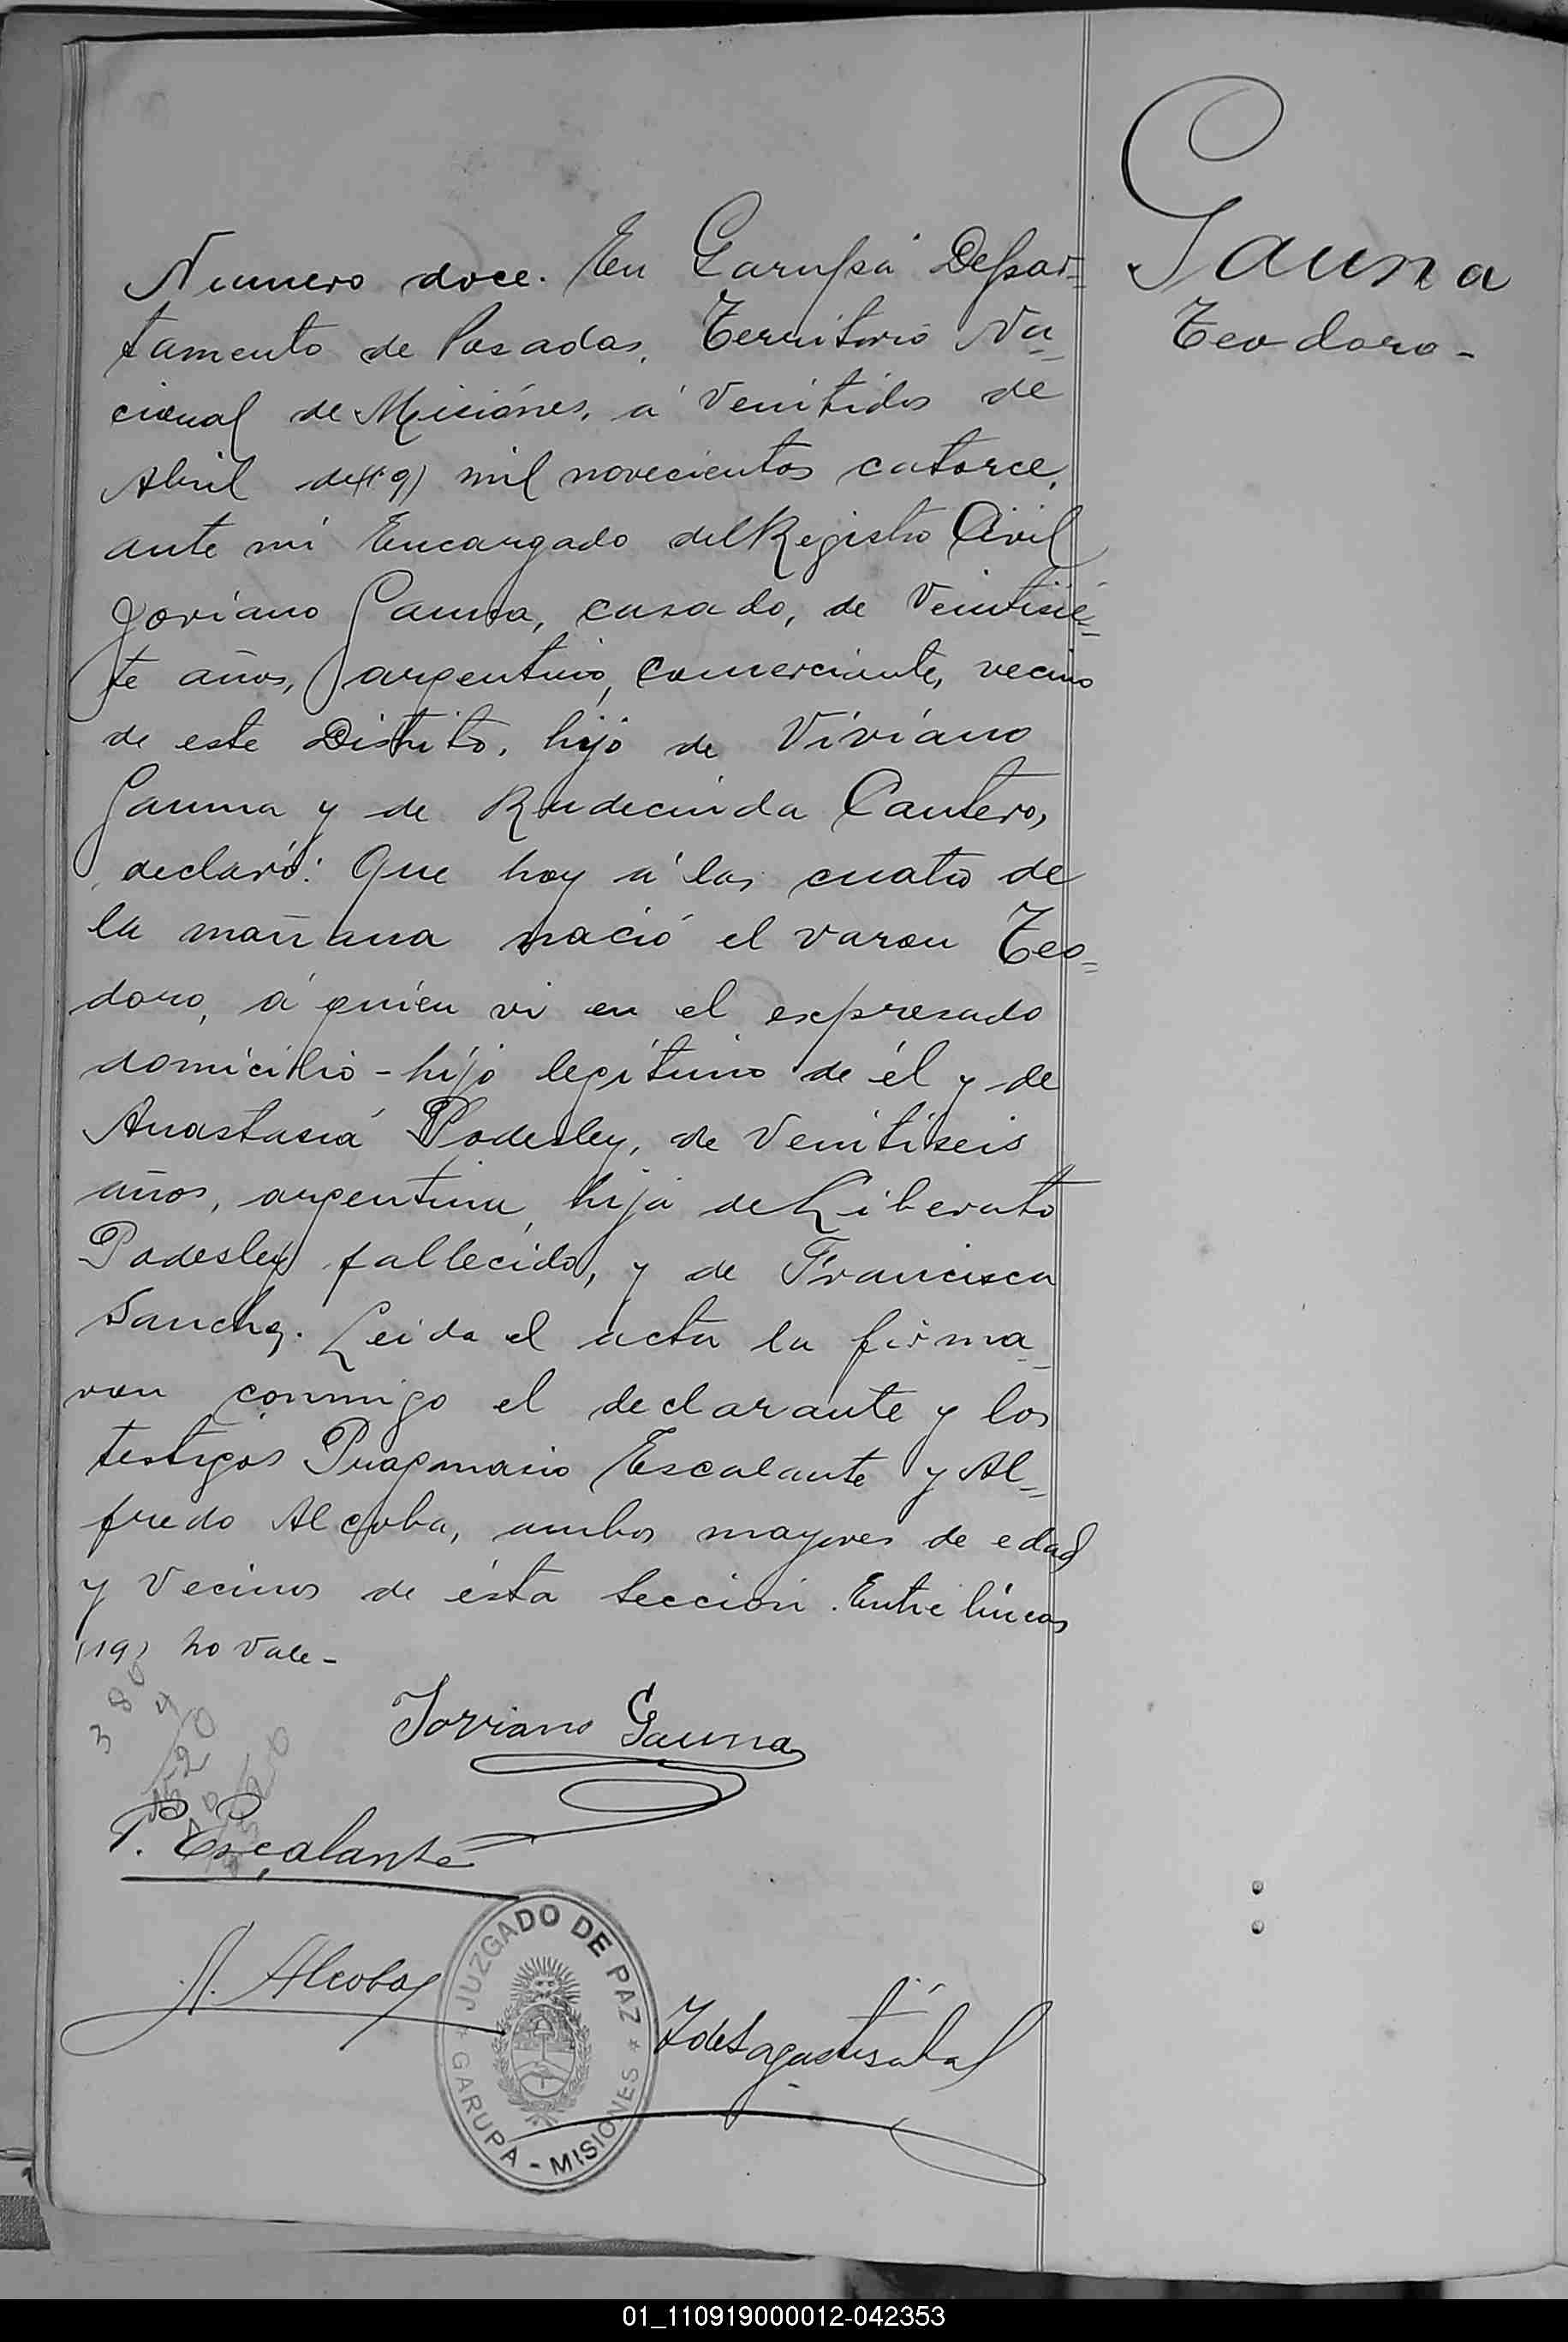 Gauna
Teodoro-
Numero doce. En Garupá Depar-
tamento de Posadas, Territorio Na-
cional de Misiónes, á Veintidos de
Abril de (19) mil novecientos catorce,
ante mi Encargado del Registro Civil
Joviano Gauna, casado, de Veintisie-
te años, argentino, comerciante, vecino
de este Distrito, hijo de Viviano
Gauna y de Rudecinda Cantero,
declaró: Que hoy á las cuatro de
la mañana nació el varon Teo-
doro, á quien vi en el expresado
domicilio - hijo legítimo de él y de
Anastasia Podesley, de Veintiseis
años, argentina, hija de Liberato
Podesley fallecido, y de Francisca
Sanchez. Leida el acta la firma-
ron conmigo el declarante y los
testigos Escalante y Al-
fredo Alcoba, ambos mayores de edad
y Vecinos de ésta Sección. Entre líneas
(19) no vale-
Joviano Gauna
P. Escalante
A. Alcoba
JUZGADO DE PAZ
GARUPA - MISIONES
01_110919000012-042353